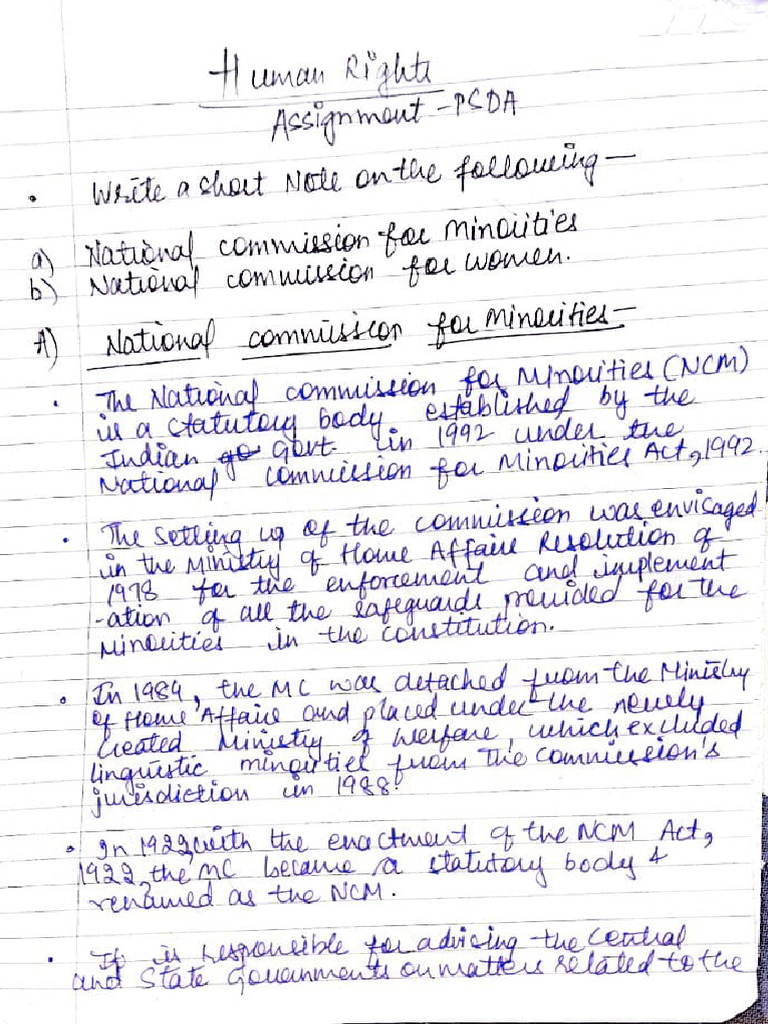 Human Rights
Assignment - PSDA
• Write a short Note on the following —
a) National commission for Minorities
b) National commission for women.
A) National commission for minorities —
• The National commission for Minorities (NCM)
is a statutory body established by the
Indian go Govt. in 1992 under the
National commission for Minorities Act, 1992.
• The setting up of the commission was envisaged
in the Ministry of Home Affairs Resolution of
1978 for the enforcement and implement
-ation of all the safeguards provided for the
Minorities in the constitution.
• In 1984, the MC was detached from the Ministry
of Home Affairs and placed under the newly
created Ministry of Welfare, which excluded
linguistic minorities from the Commission's
jurisdiction in 1988.
• In 1922, with the enactment of the NCM Act,
1922, the MC became a statutory body &
renamed as the NCM.
• It is responsible for advising the central
and State Governments on matters related to the